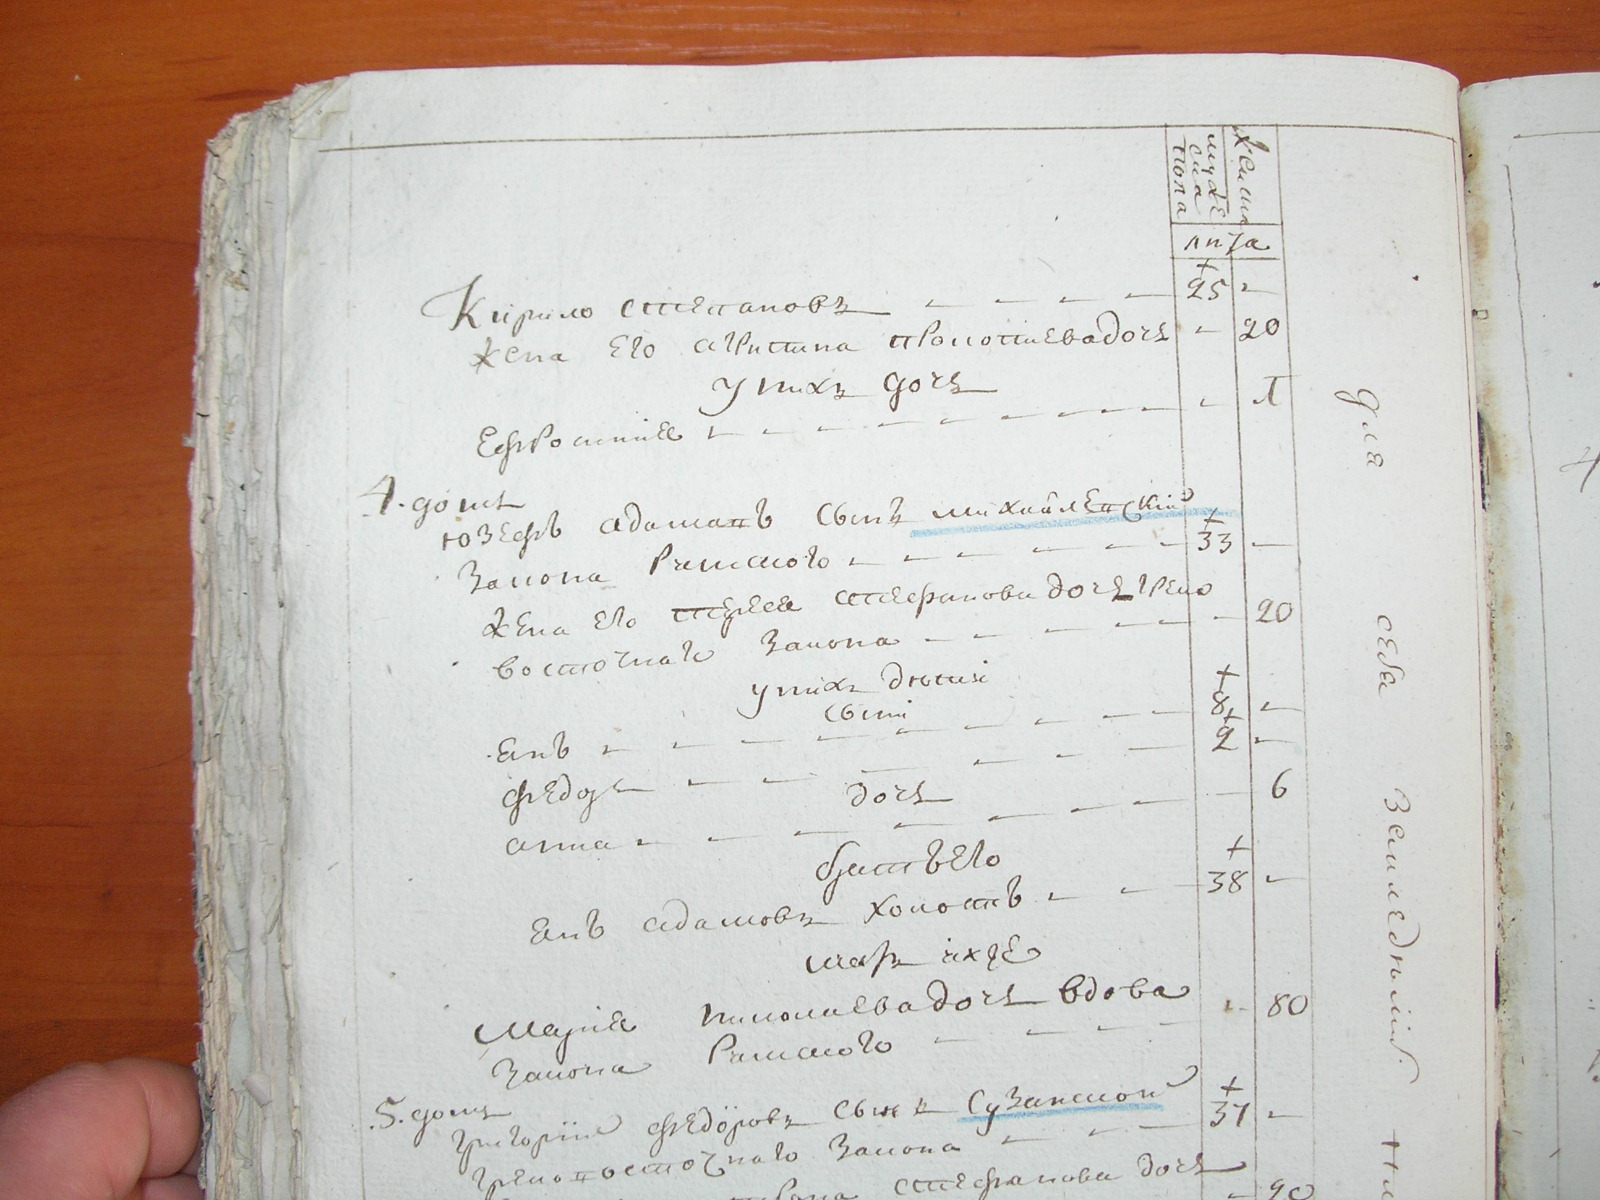 мужеска пола
женска
лита
Кирило степановъ 25
жена его агрипина прокопиева дочь 20
у нихъ дочь
Ефросиния 1
4. домъ
юзефъ адамавъ сынъ михайлевский
закона Римского 33
жена его стефанова дочь греко
восточнаго закона 20
у нихъ дети
сыни
Янъ 8
Федоръ 2
дочь
анна 6
братъ его
Янъ адамовъ холостъ 38
мать ихже
Мария николаева дочь вдова 80
закона Римского
5. домъ
григорий федоровъ сынъ Сузанской 37
греко восточнаго закона
стефанова дочь
для себя